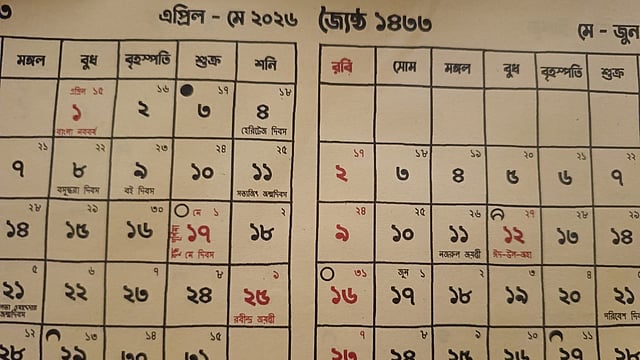 ৩ এপ্রিল - মে ২০২৬
মঙ্গল বুধ বৃহস্পতি শুক্র শনি
এপ্রিল ১৫ ১৬ ১৭ ১৮
১ ২ ৩ ৪
বাংলা নববর্ষ হেরিটেজ দিবস
২১ ২২ ২৩ ২৪ ২৫
৭ ৮ ৯ ১০ ১১
বসুন্ধরা দিবস বই দিবস
২৮ ২৯ ৩০ মে ১ ২
১৪ ১৫ ১৬ ১৭ ১৮
বুদ্ধ পূর্ণিমা
মে দিবস
৫ ৬ ৭ ৮ ৯
২১ ২২ ২৩ ২৪ ২৫
রবীন্দ্র জয়ন্তী
১২ ১৩ ১৪ ১৫
২৮ ২৯ ৩০ ৩১
জ্যৈষ্ঠ ১৪৩৩ মে - জুন
রবি সোম মঙ্গল বুধ বৃহস্পতি শুক্র
১৭ ১৮ ১৯ ২০ ২১ ২২
২ ৩ ৪ ৫ ৬ ৭
২৪ ২৫ ২৬ ২৭ ২৮ ২৯
৯ ১০ ১১ ১২ ১৩ ১৪
নজরুল জয়ন্তী ঈদ-উল-জোহা
৩১ জুন ১ ২ ৩ ৪ ৫
১৬ ১৭ ১৮ ১৯ ২০ ২১
পরিবেশ দিবস
৭ ৮ ৯ ১০ ১১
২৩ ২৪ ২৫ ২৬ ২৭ ২৮